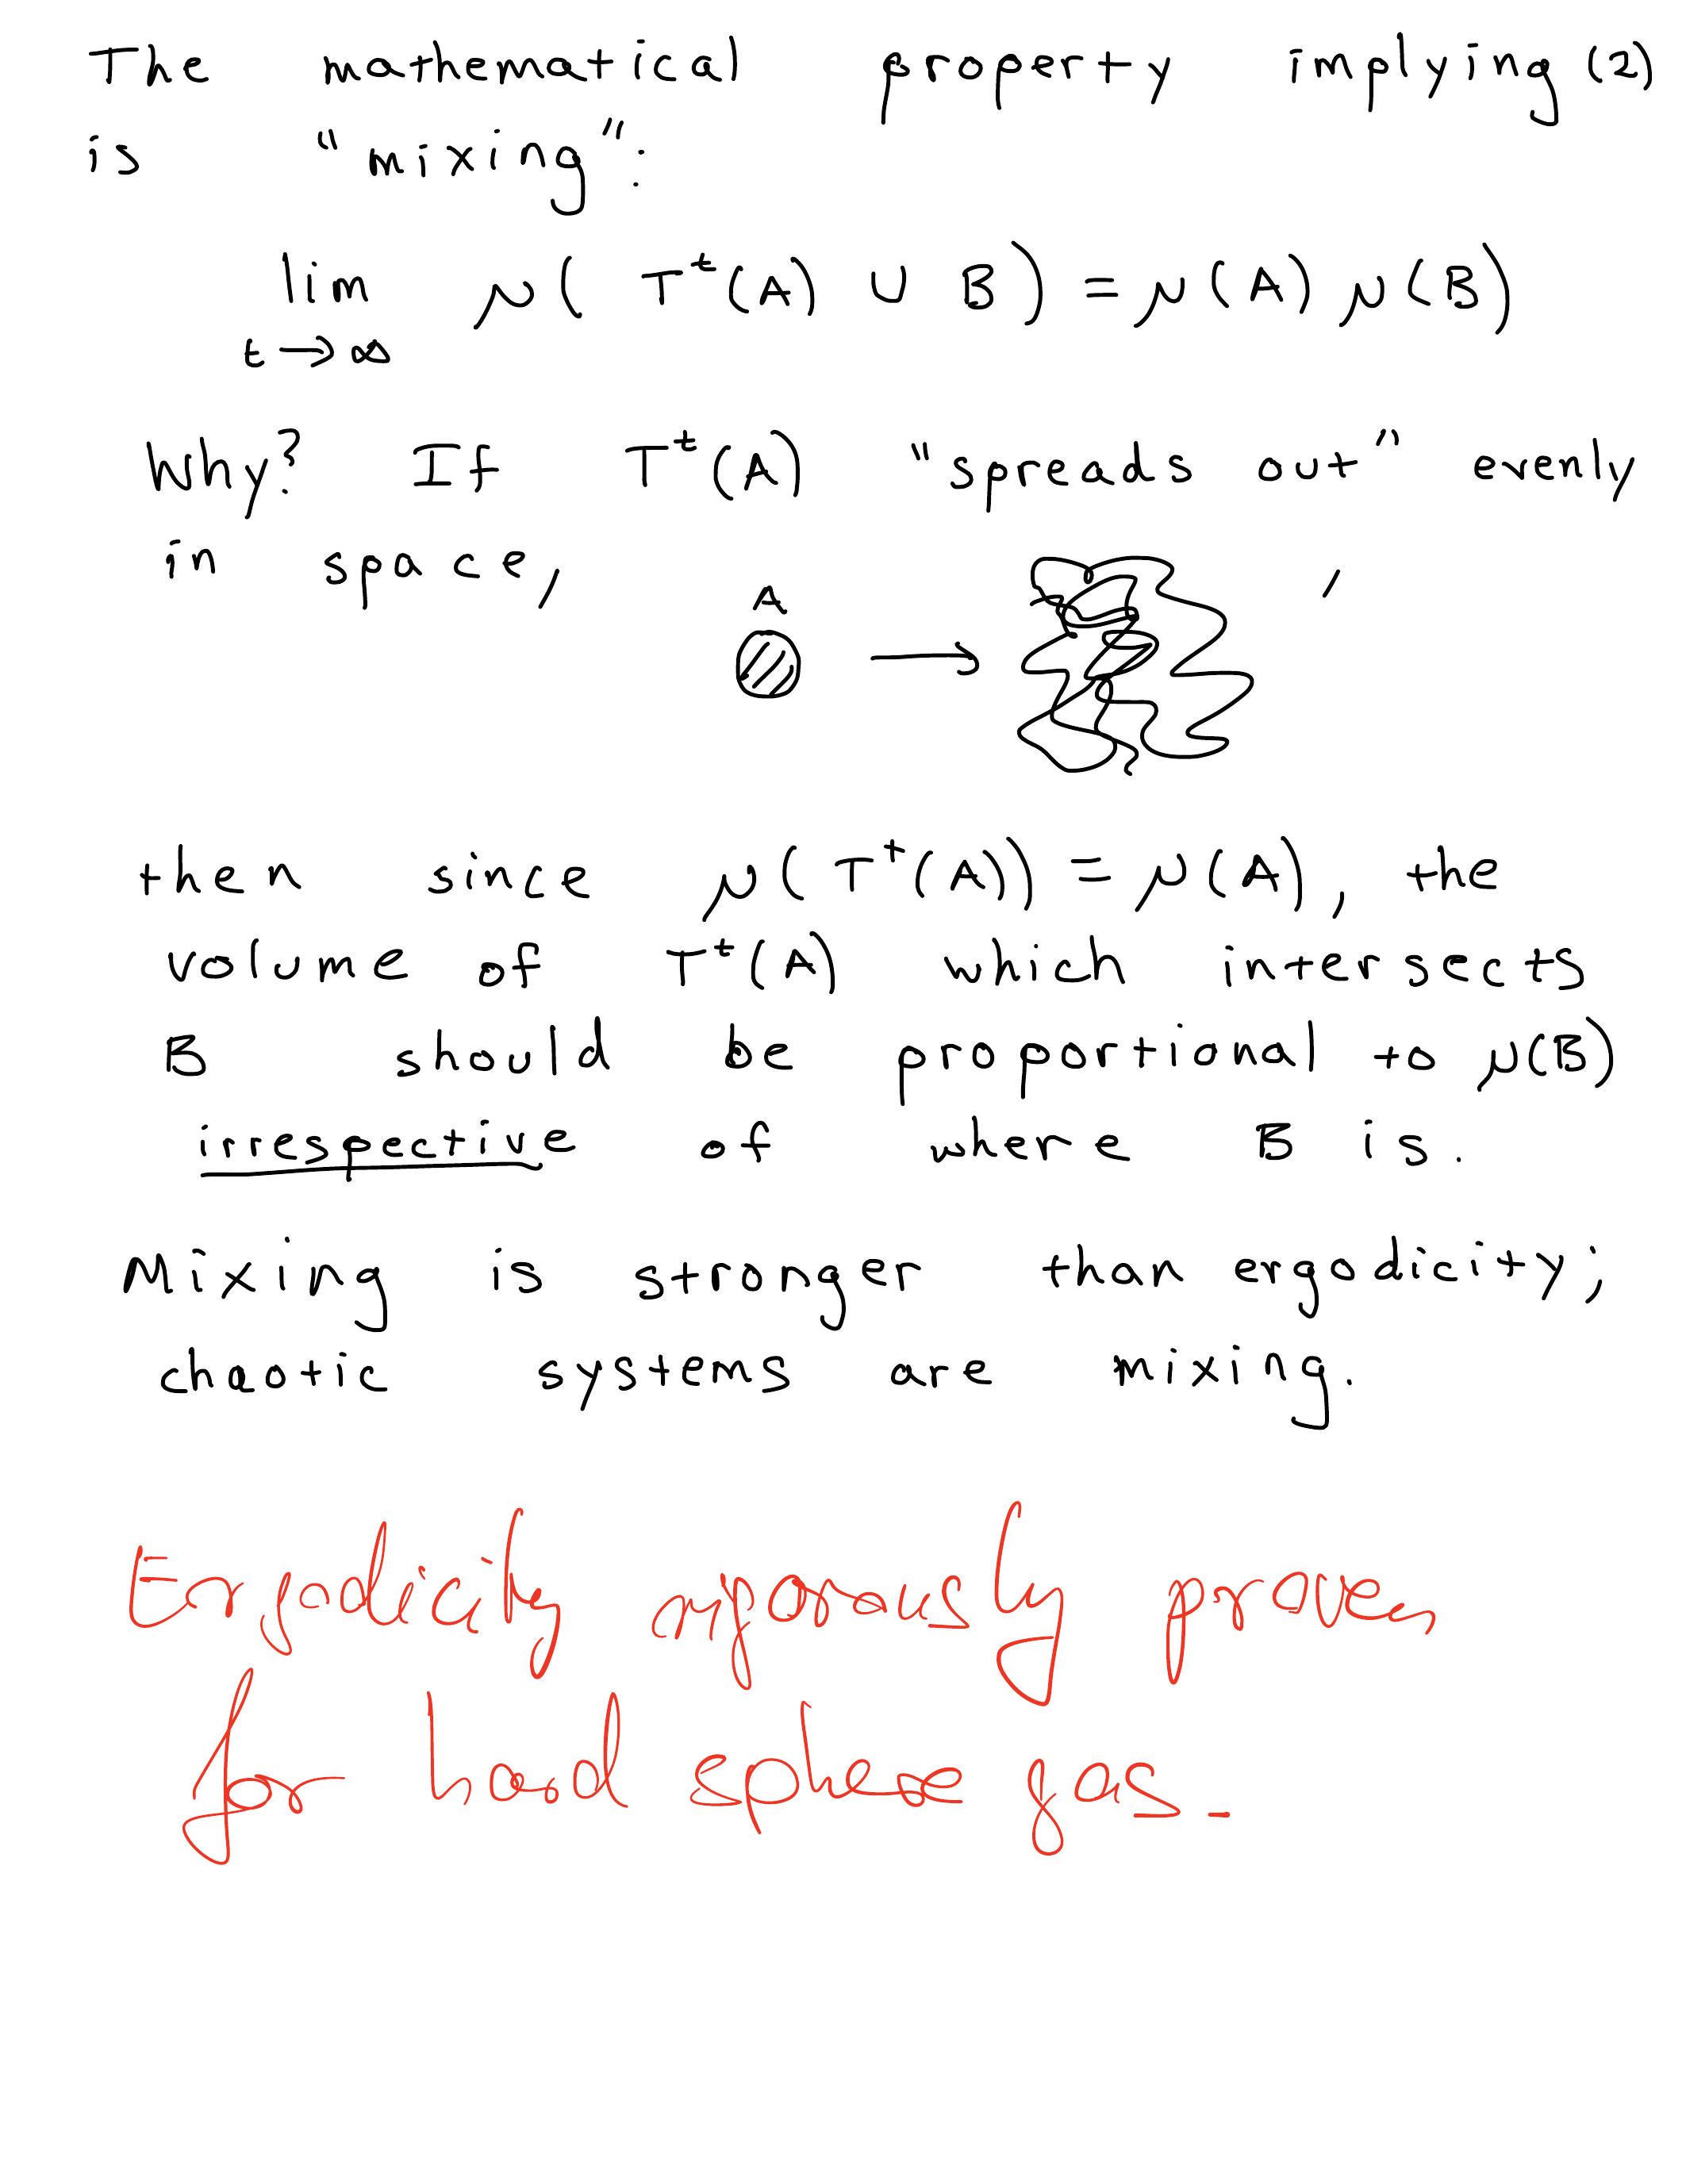 The mathematical property implying (2)
is "mixing":
lim μ( Tᵗ(A) ∪ B) = μ(A) μ(B)
t → ∞
Why? If Tᵗ(A) "spreads out" evenly
in space, ,
A
then since μ(Tᵗ(A)) = μ(A), the
volume of Tᵗ(A) which intersects
B should be proportional to μ(B)
irrespective of where B is.
Mixing is stronger than ergodicity;
chaotic systems are mixing.
Ergodicity rigorously proven
for hard sphere gas.